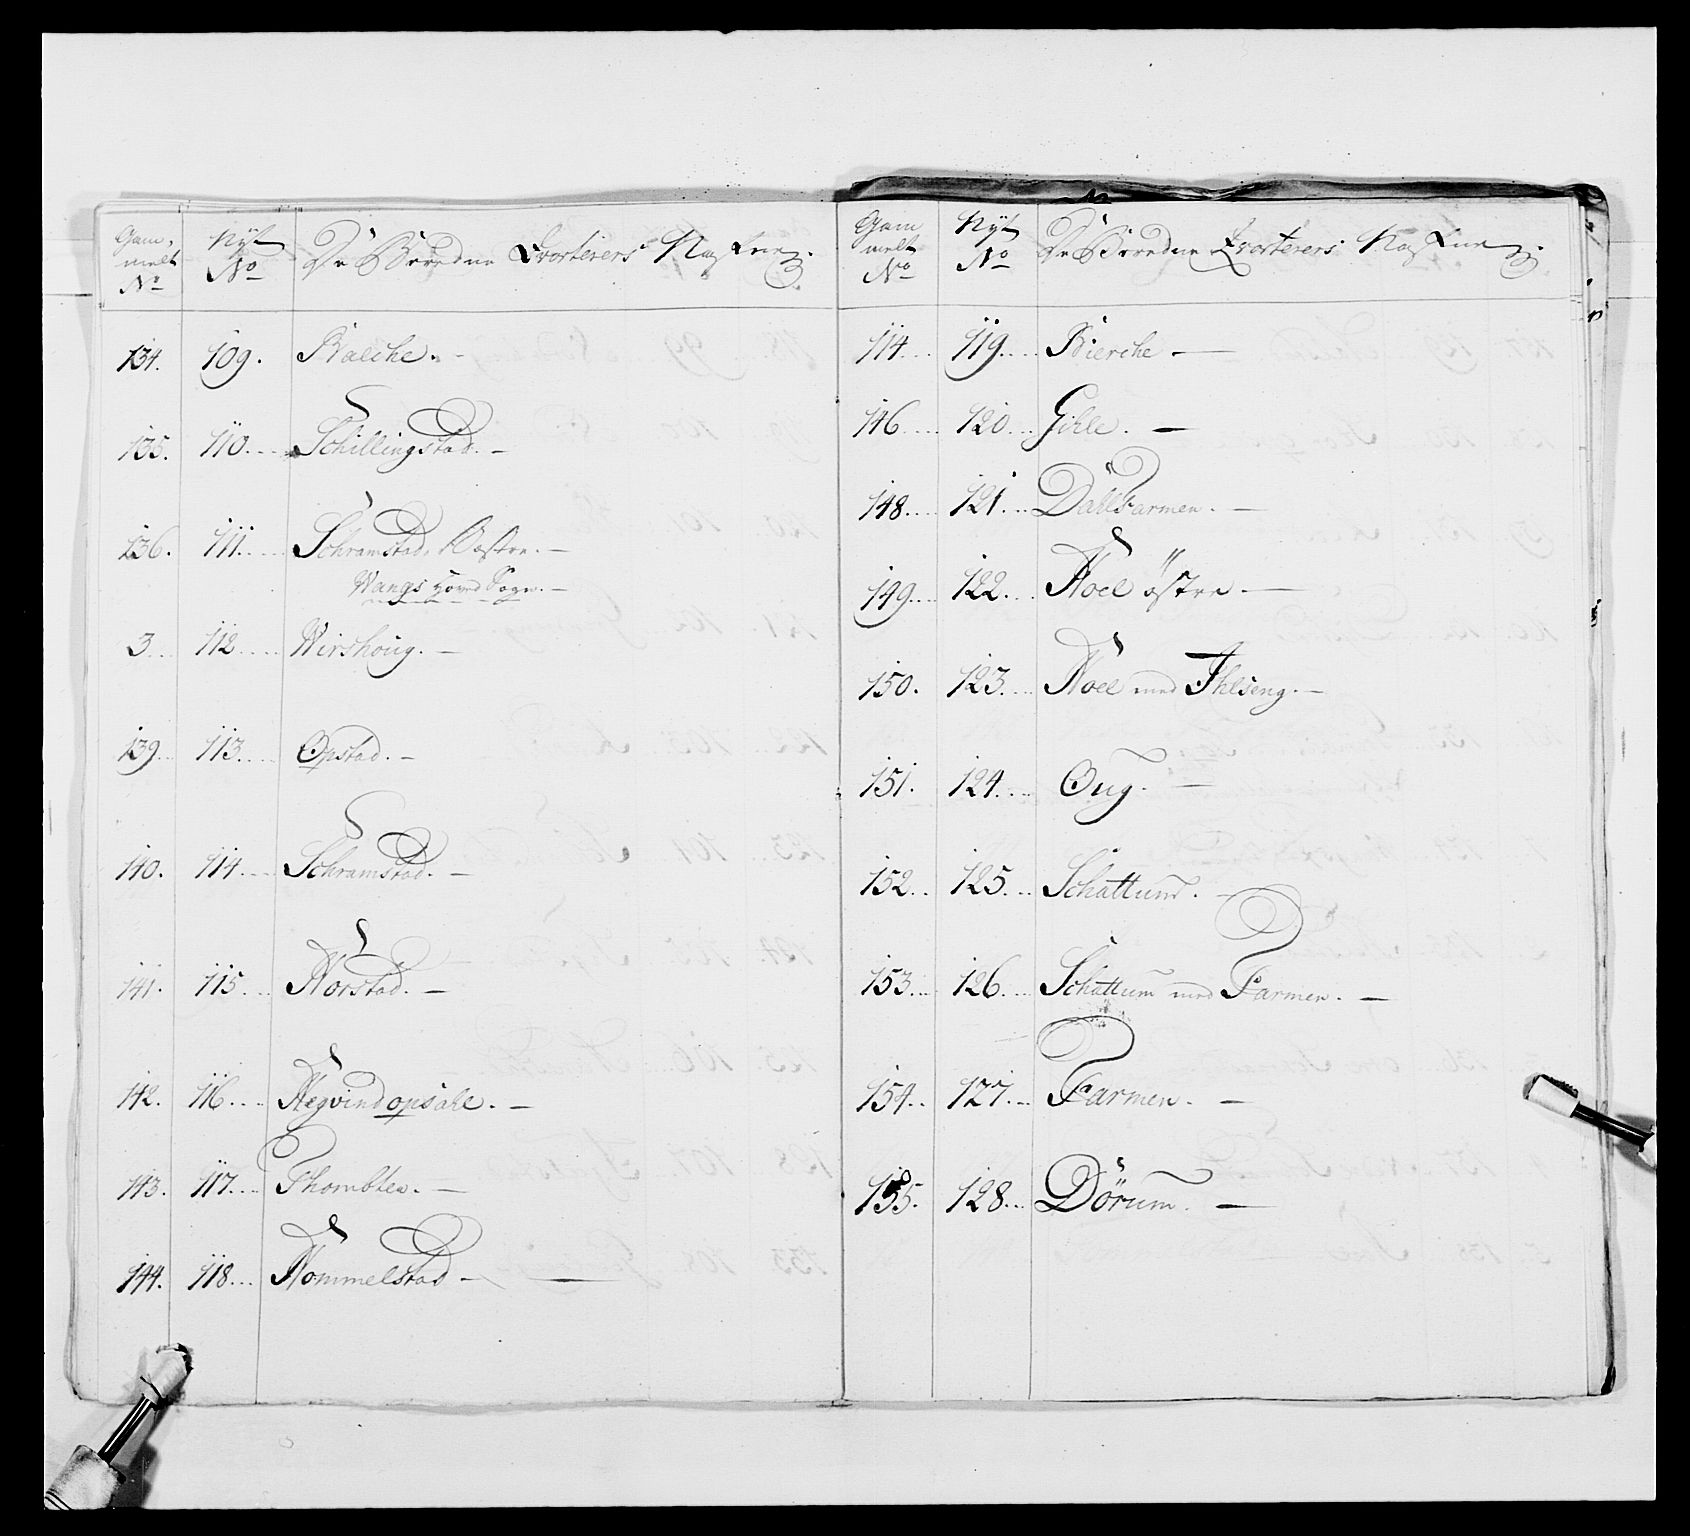 Gam¸ melt No
Nÿt No
De Beredne Qvarterers Nafne
134. 109. Balche. -
135. 110. Schillingstad. -
136. 111. Schramstad Væstre. -
Wangs Hoved Sogn. -
3. 112. Wirshoug. -
139. 113. Opstad. -
140. 114. Schramstad. -
141. 115. Norstad. -
142. 116. Hegvindopsahl. -
143. 117. Thombter. -
144. 118. Hommelstad -
Gam melt No
Nÿt No
De Beredne Qvarterers Nafne
114. 119. Bierche -
146. 120. Gihle. -
148. 121. Dahlfarmen. -
149. 122. Hoel östre. -
150. 123. Hoel med Ihlseng. -
151. 124. Oug. -
152. 125. Schattum. -
153. 126. Schattum med Farmen. -
154. 127. Farmen. -
155. 128. Dörum. -